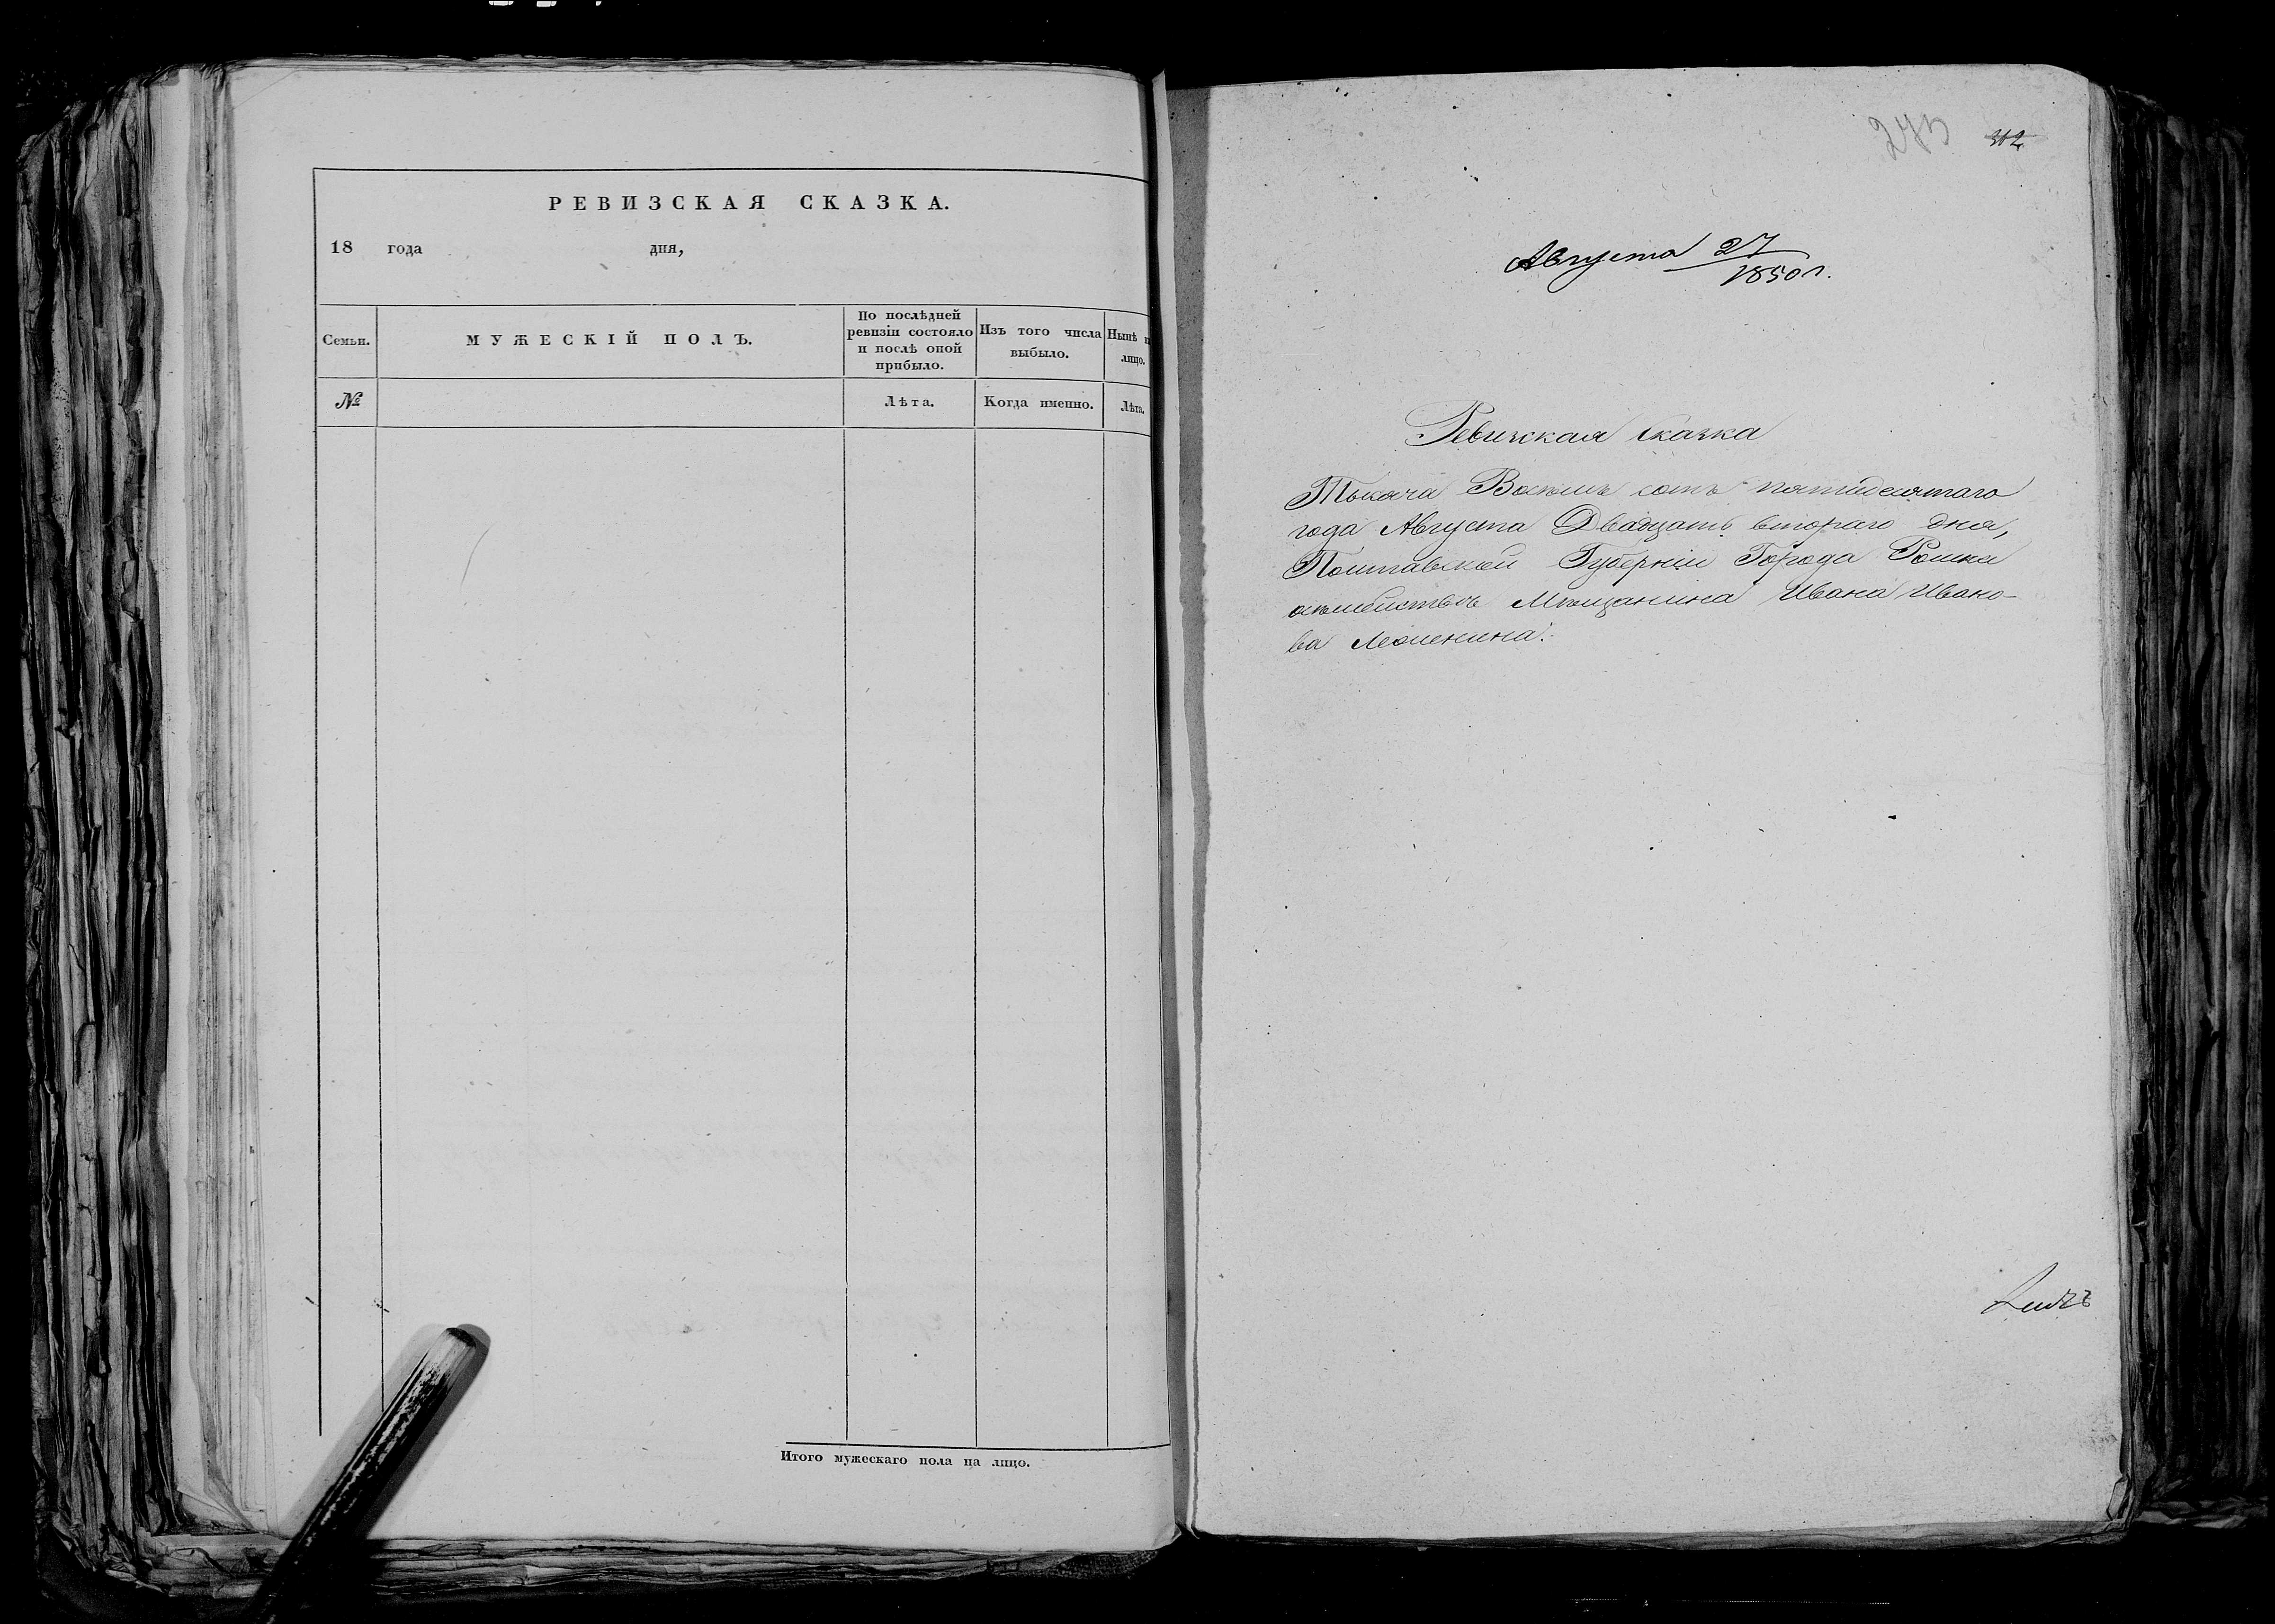 РЕВИЗСКАЯ СКАЗКА.
18 года дня,
Семьи.
МУЖЕСКІЙ ПОЛЪ.
По послѣдней
ревизіи состояло
и послѣ оной
прибыло.
Изъ того числа
выбыло.
Нынѣ
лицо.
№
Лѣта.
Когда именно.
Лѣта.
Итого мужескаго пола на лицо.
275
312
Августа 27
1850 г.
Ревизская сказка
Тысяча Восемь сотъ пятидесятаго
года Августа Двадцать втораго дня,
Полтавской Губерніи Города Ромна
Мѣщанина Ивана Ивано-
ва